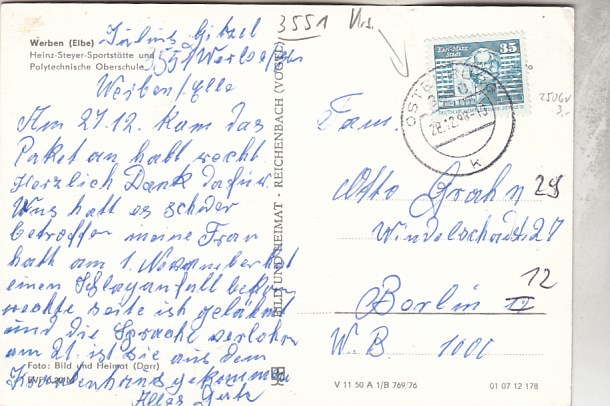 Werben (Elbe)
Heinz-Steyer-Sportstätte und
Polytechnische Oberschule
Julius
3551 Werben
Werben/Elbe
Am 27.12. kam das
Paket an, habt recht
Herzlich Dank dafür.
Uns hatt es schwer
getroffen meine Frau
hatt am 1. November
einen Schlaganfall
rechte seite ist gelähmt
und die Sprache verlohren
am 21. ist sie aus dem
Krankenhaus gekommen
Alles Gute
Foto: Bild und Heimat (Darr)
BILD UND HEIMAT · REICHENBACH (VOGTL)
3551
Karl-Marx-
Stadt
35
DDR
28.12.
k
Fam.
Otto Grahn 29
27
12
Berlin II
W. B. 1000
V 11 50 A 1/B 769/76
01 07 12 178